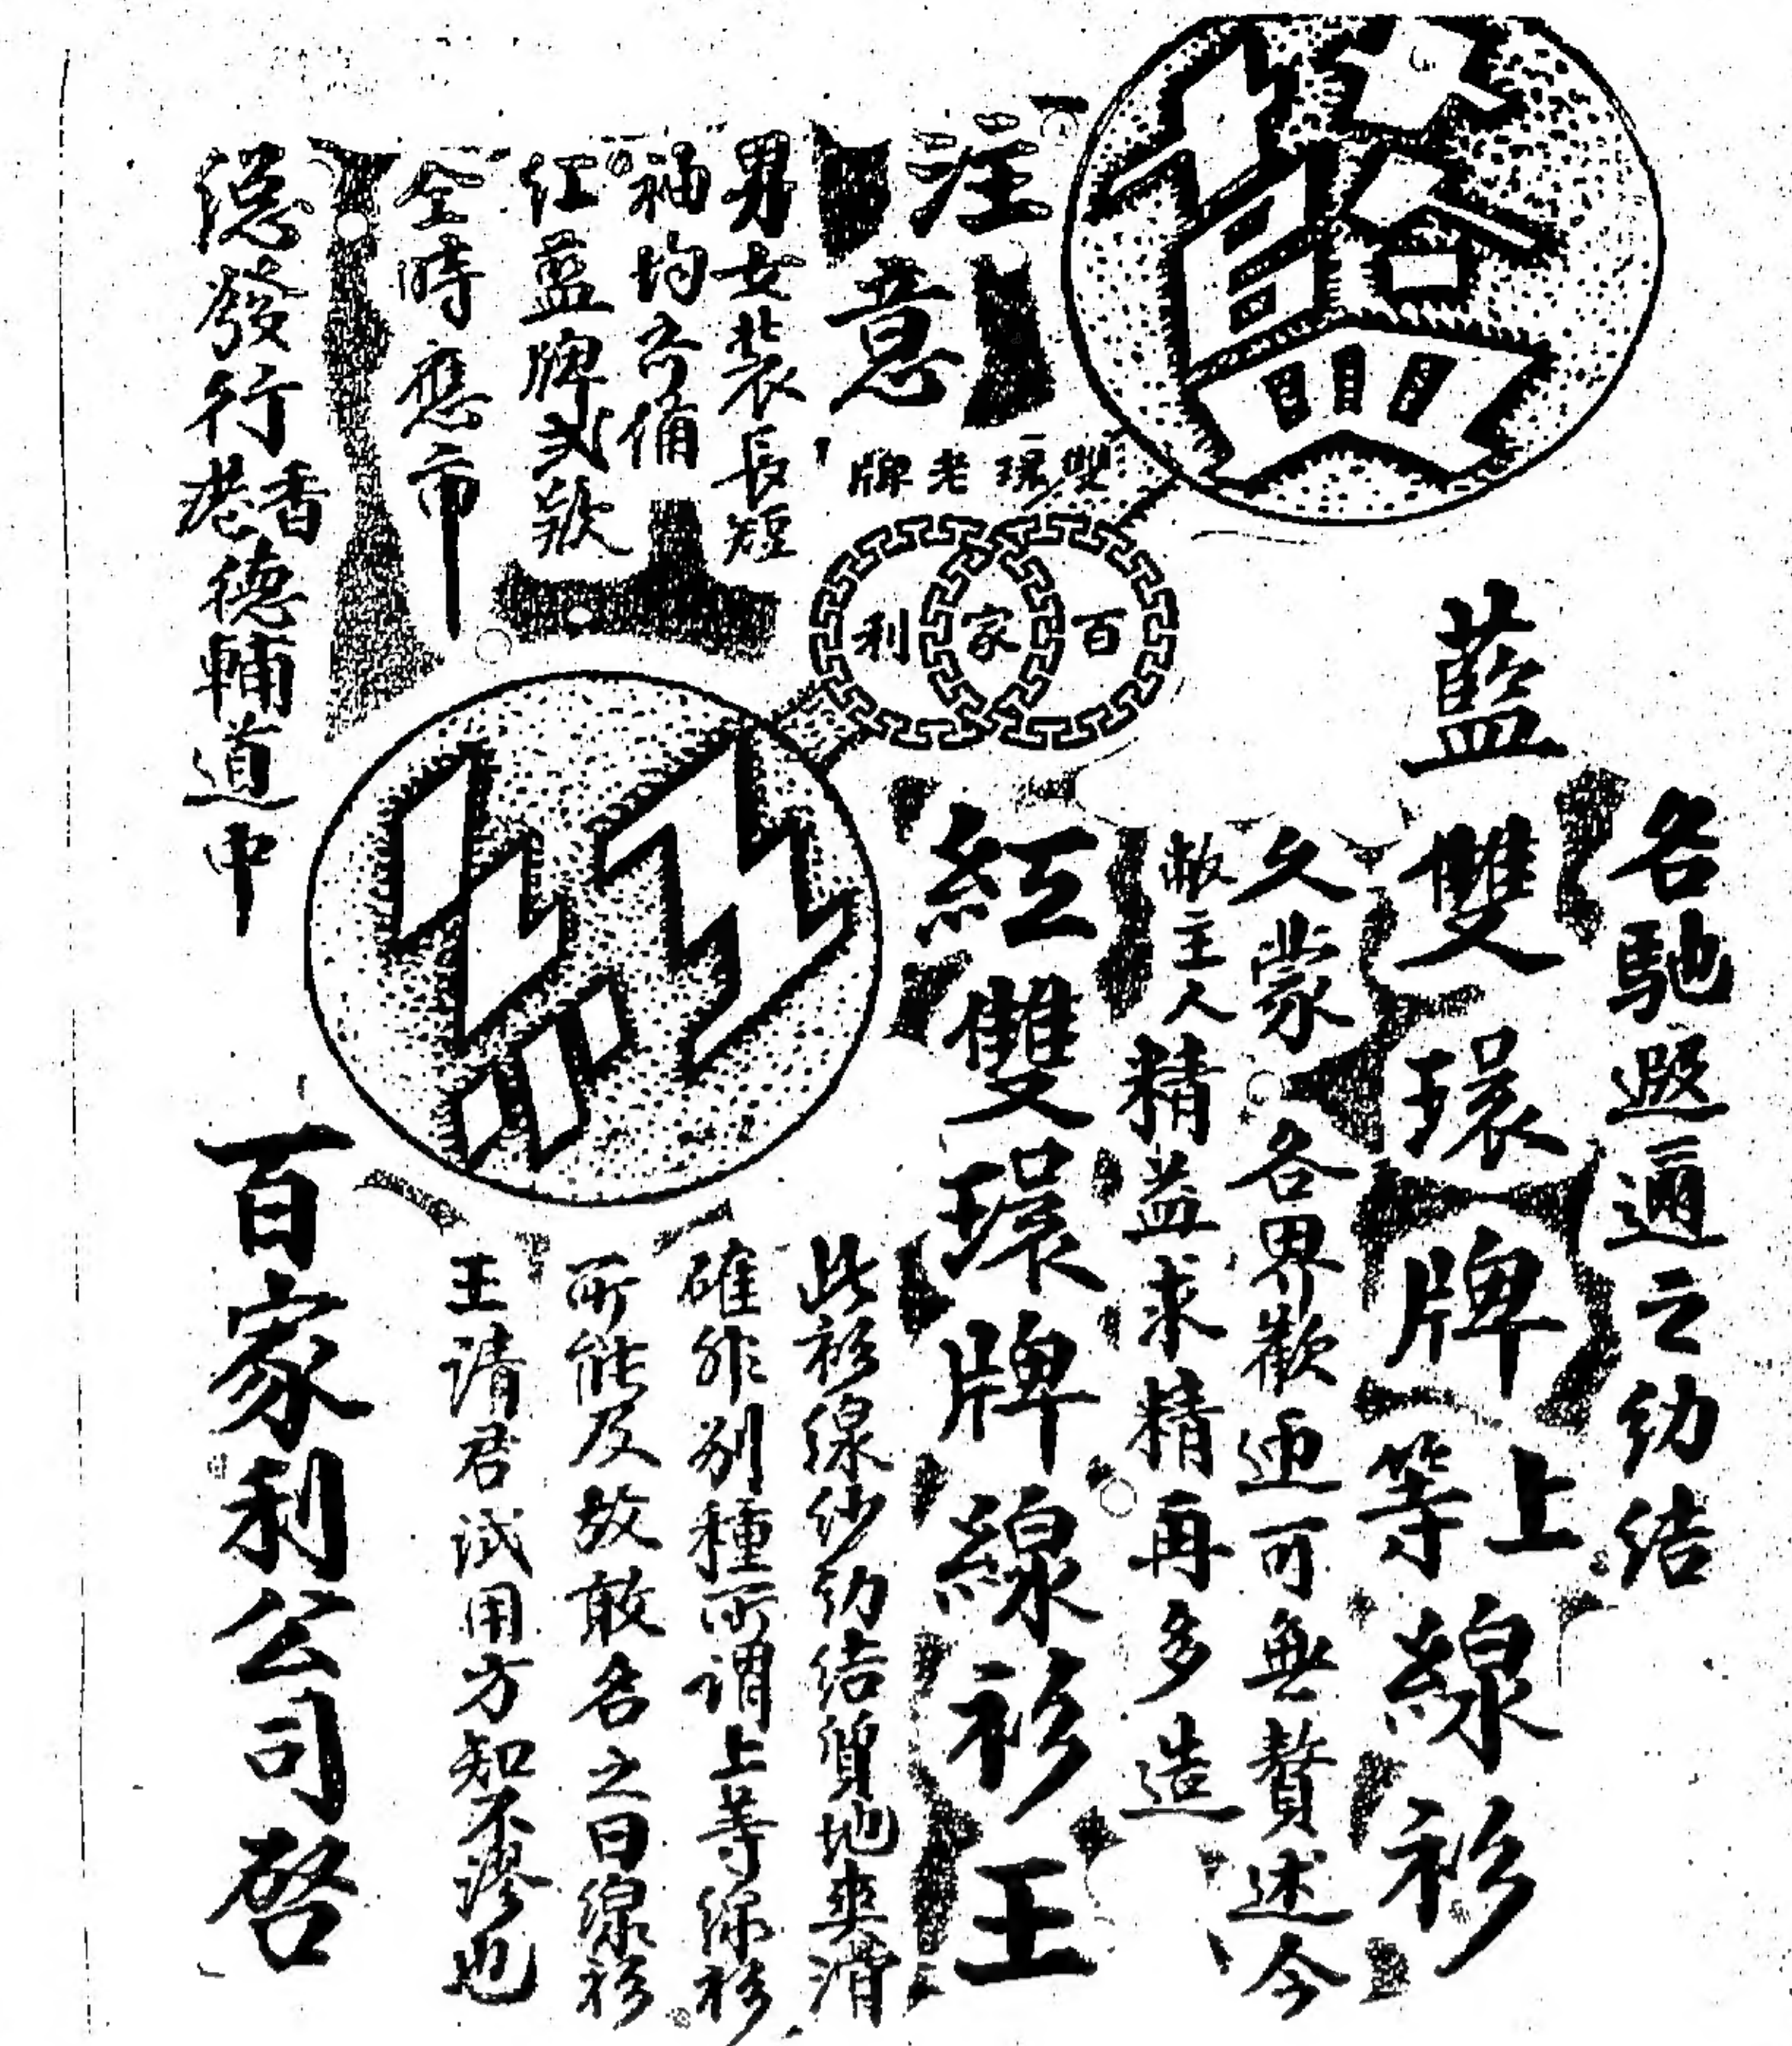 藍
名馳遐邇之幼結
藍雙環牌上等線衫
久蒙各界歡迎可無贅述今
敝主人精益求精再多造
紅雙環牌線衫王
此衫線紗幼結質地爽滑
確非別種所謂上等線衫
所能及故敢名之曰線衫
王請君試用方知不謬也
雙環老牌
百家利
紅
注意
男女裝長短
袖均齐備
紅藍牌弍欵
全時應市
總發行香港德輔道中
百家利公司啓